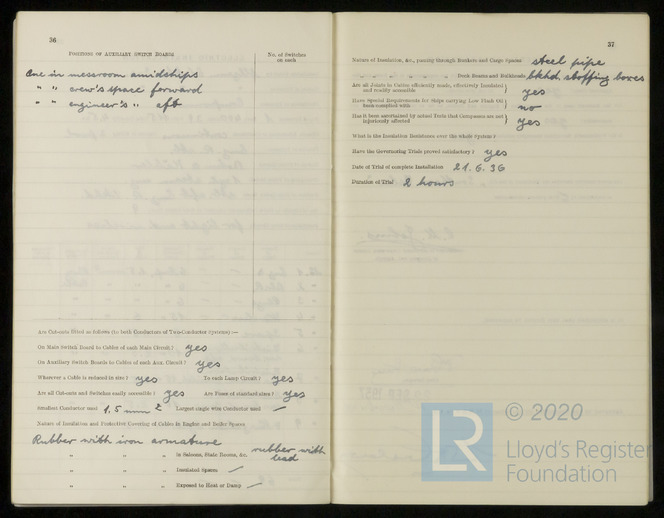 36
POSITIONS OF AUXILIARY SWITCH BOARDS
No. of Switches on each
One in messroom amidships
" " crew's space forward
" " engineer's " aft
Are Cut-outs fitted as follows (to both Conductors of Two-Conductor Systems) :—
On Main Switch Board to Cables of each Main Circuit? yes
On Auxiliary Switch Boards to Cables of each Aux. Circuit? yes
Wherever a Cable is reduced in size? yes To each Lamp Circuit? yes
Are all Cut-outs and Switches easily accessible? yes Are Fuses of standard sizes? yes
Smallest Conductor used 1,5 mm 2 Largest single wire Conductor used —
Nature of Insulation and Protective Covering of Cables in Engine and Boiler Spaces
Rubber with iron armature
" " " in Saloons, State Rooms, &c. rubber with lead
" " " Insulated Spaces —
" " " Exposed to Heat or Damp —
37
Nature of Insulation, &c., passing through Bunkers and Cargo Spaces steel pipe
" " " Deck Beams and Bulkheads bkhd stuffing boxes
Are all Joints in Cables efficiently made, effectively Insulated and readily accessible } yes
Have Special Requirements for Ships carrying Low Flash Oil been complied with } no
Has it been ascertained by actual Tests that Compasses are not injuriously affected } yes
What is the Insulation Resistance over the whole System?
Have the Governing Trials proved satisfactory? yes
Date of Trial of complete Installation 21.6.36
Duration of Trial 2 hours
LR
© 2020
Lloyd's Register
Foundation